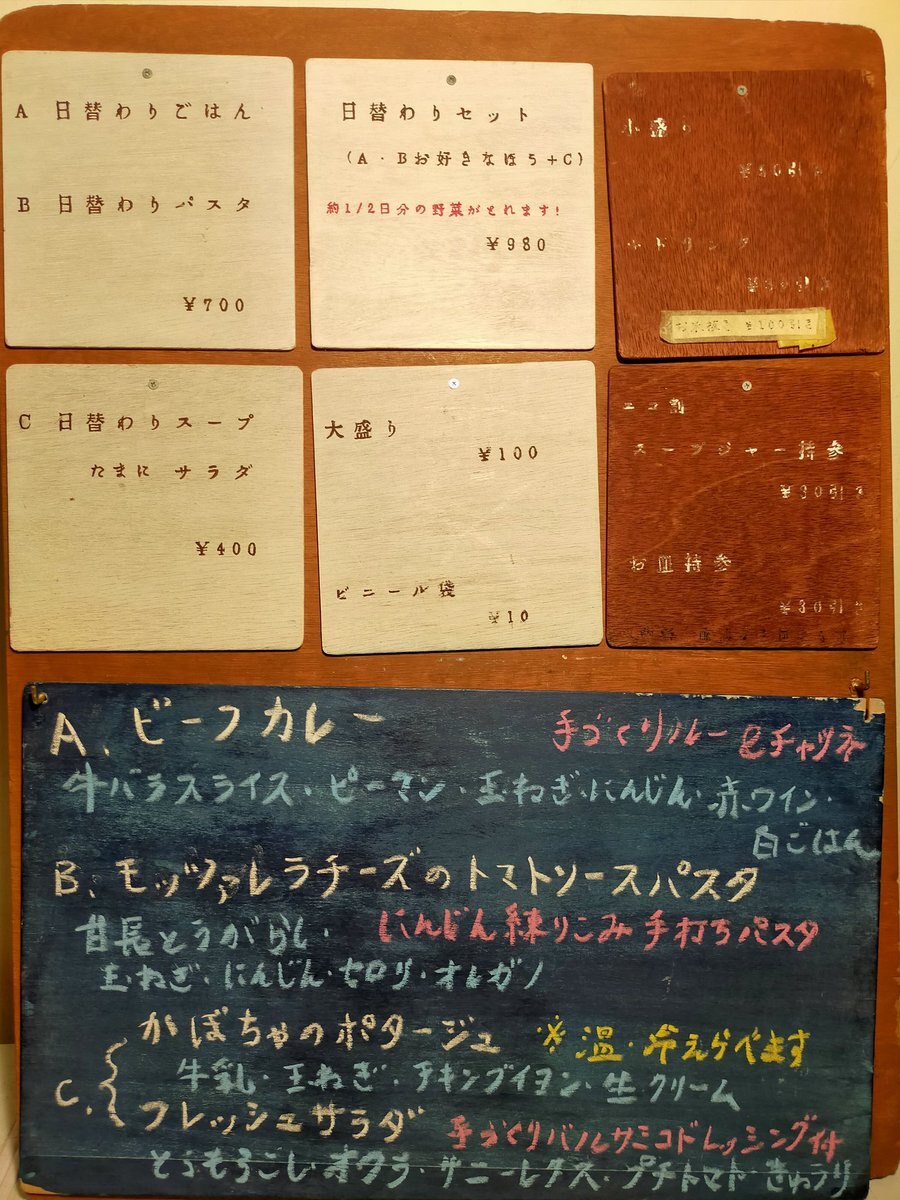 A 日替わりごはん
B 日替わりパスタ
¥700
日替わりセット
(A・Bお好きなほう+C)
約1/2日分の野菜がとれます!
¥980
小盛り
¥50引き
¥100引き
C 日替わりスープ
たまに サラダ
¥400
大盛り
¥100
ビニール袋
¥10
エコ割
スープジャー持参
¥30引き
お皿持参
¥30引き
A、ビーフカレー
手づくりルー&チャツネ
牛バラスライス・ピーマン・玉ねぎ・にんじん・赤ワイン・
白ごはん
B、モッツァレラチーズのトマトソースパスタ
甘長とうがらし・
にんじん練りこみ手打ちパスタ
玉ねぎ・にんじん・セロリ・オレガノ
C、
かぼちゃのポタージュ
※温・冷えらべます
牛乳・玉ねぎ・チキンブイヨン・生クリーム
フレッシュサラダ
手づくりバルサミコドレッシング付
とうもろこし・オクラ・サニーレタス・プチトマト・きゅうり